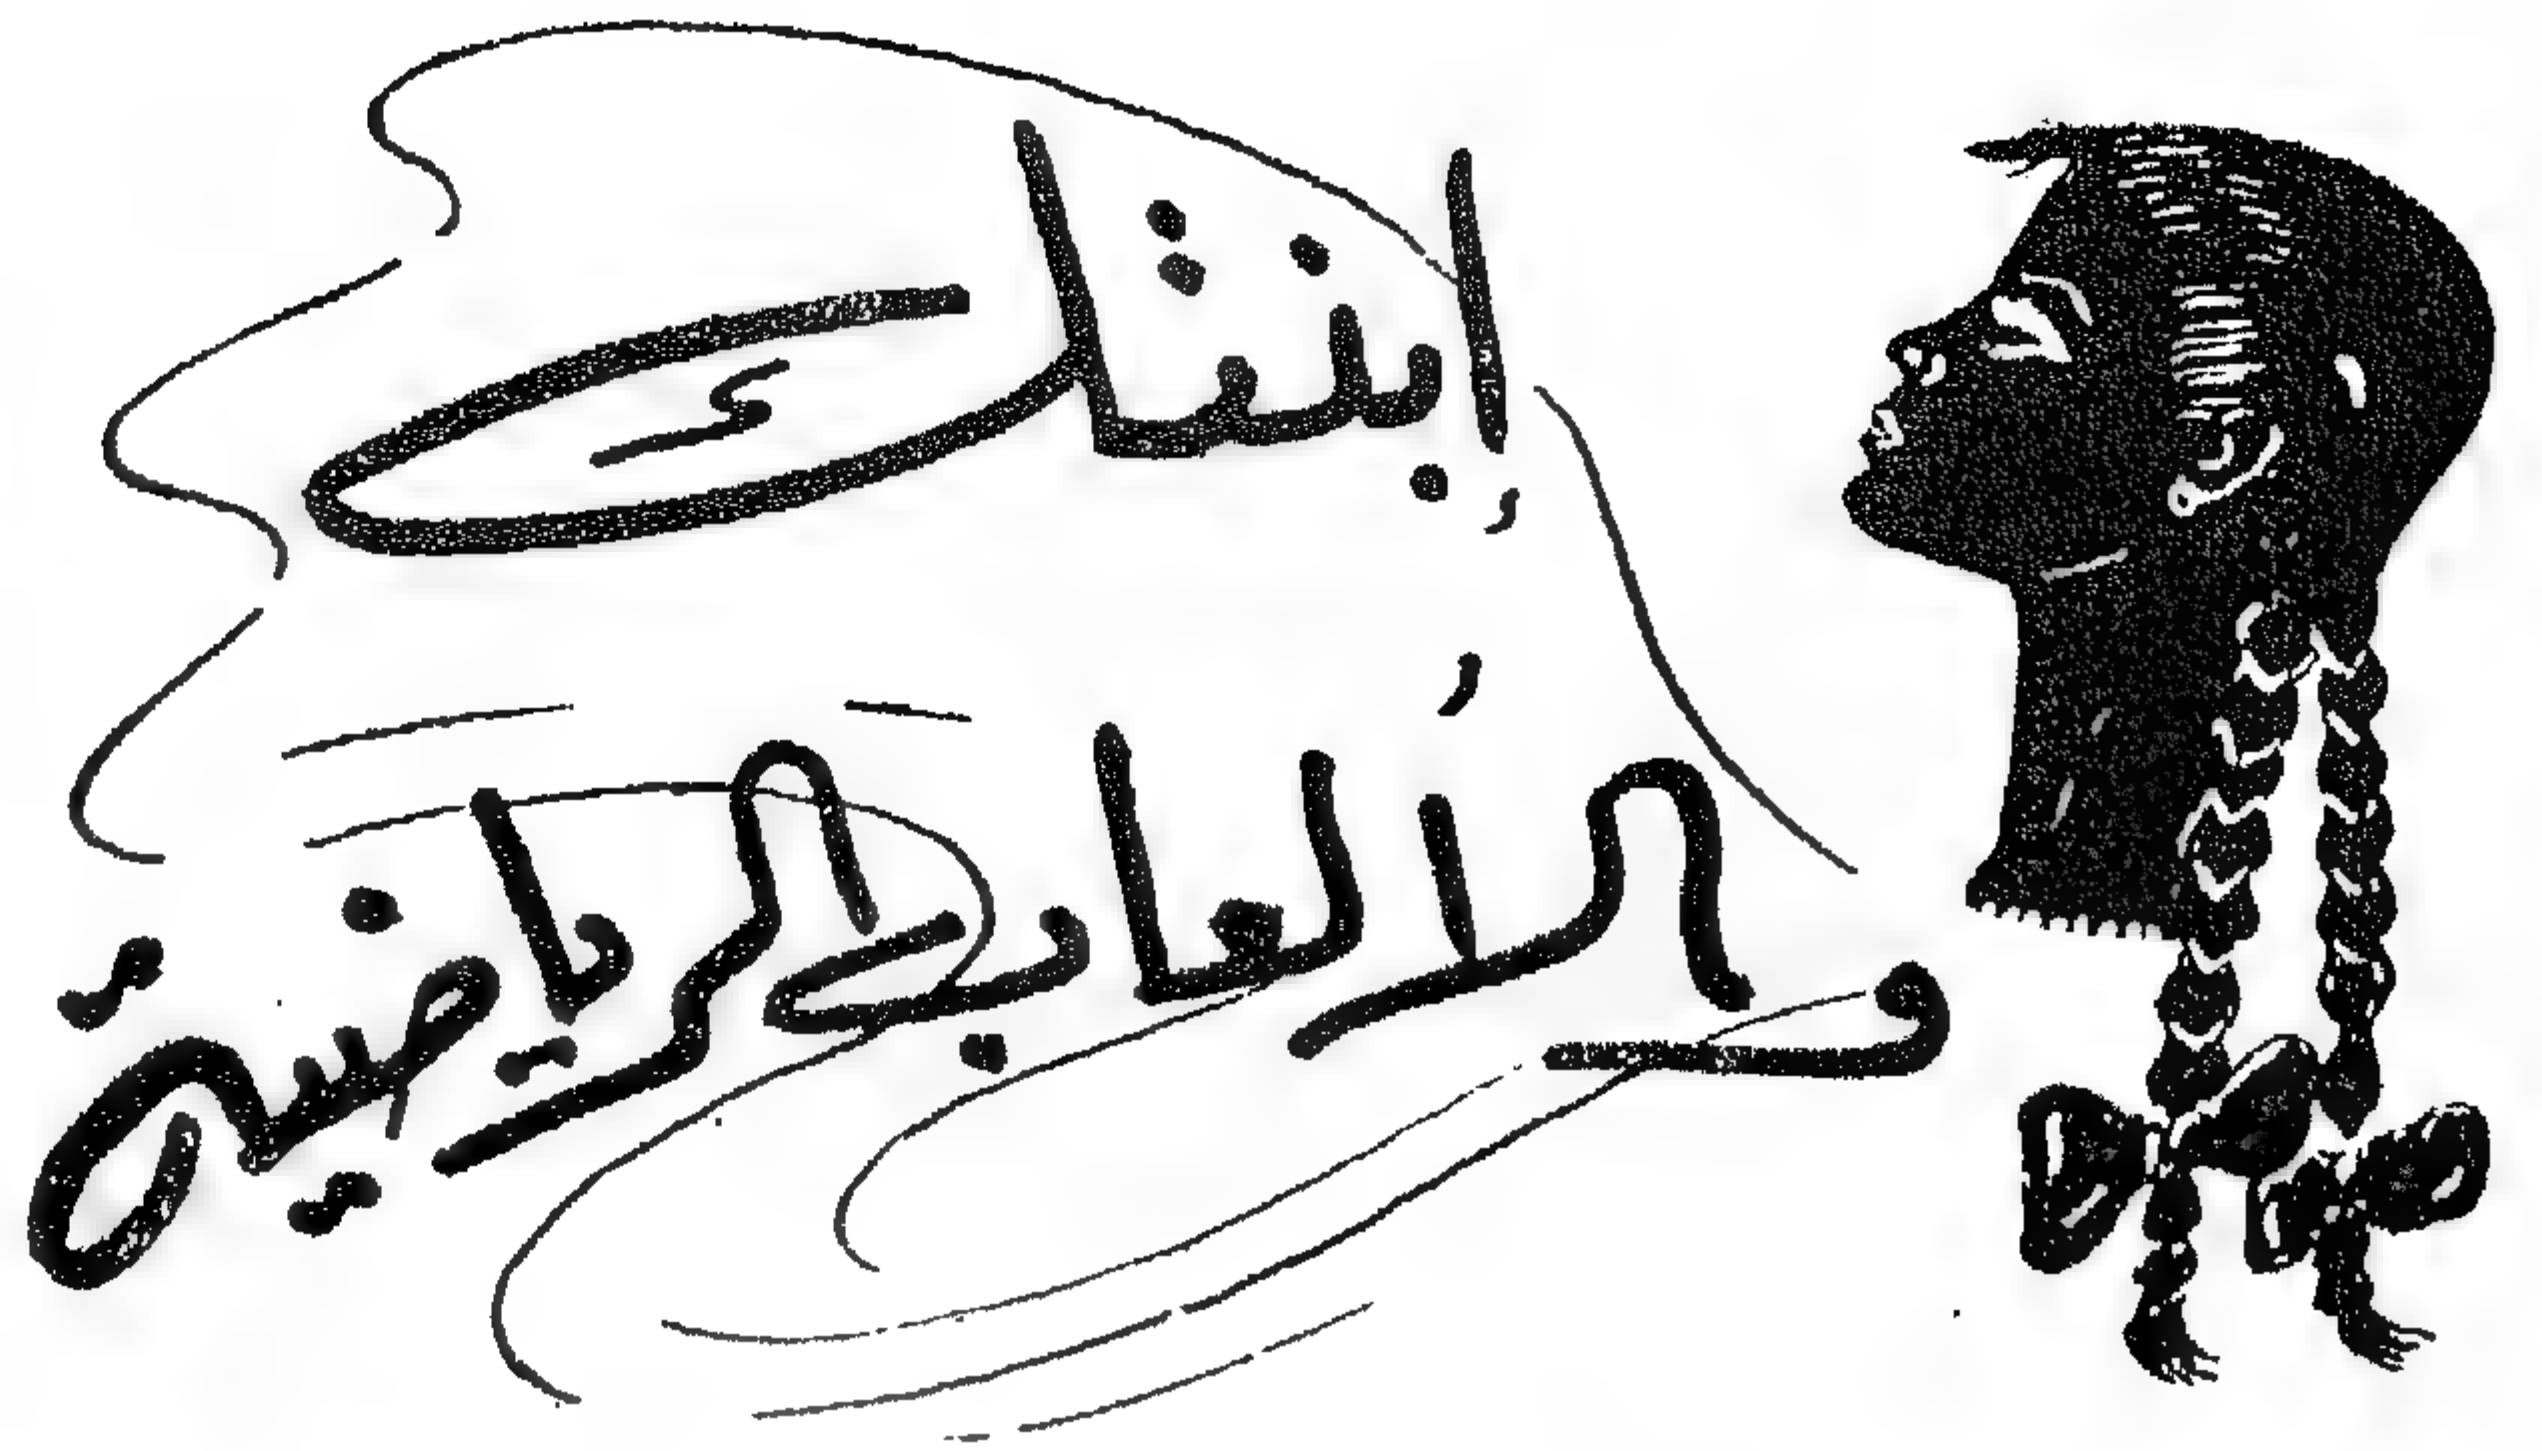 إبنتك
والألعاب الرياضية